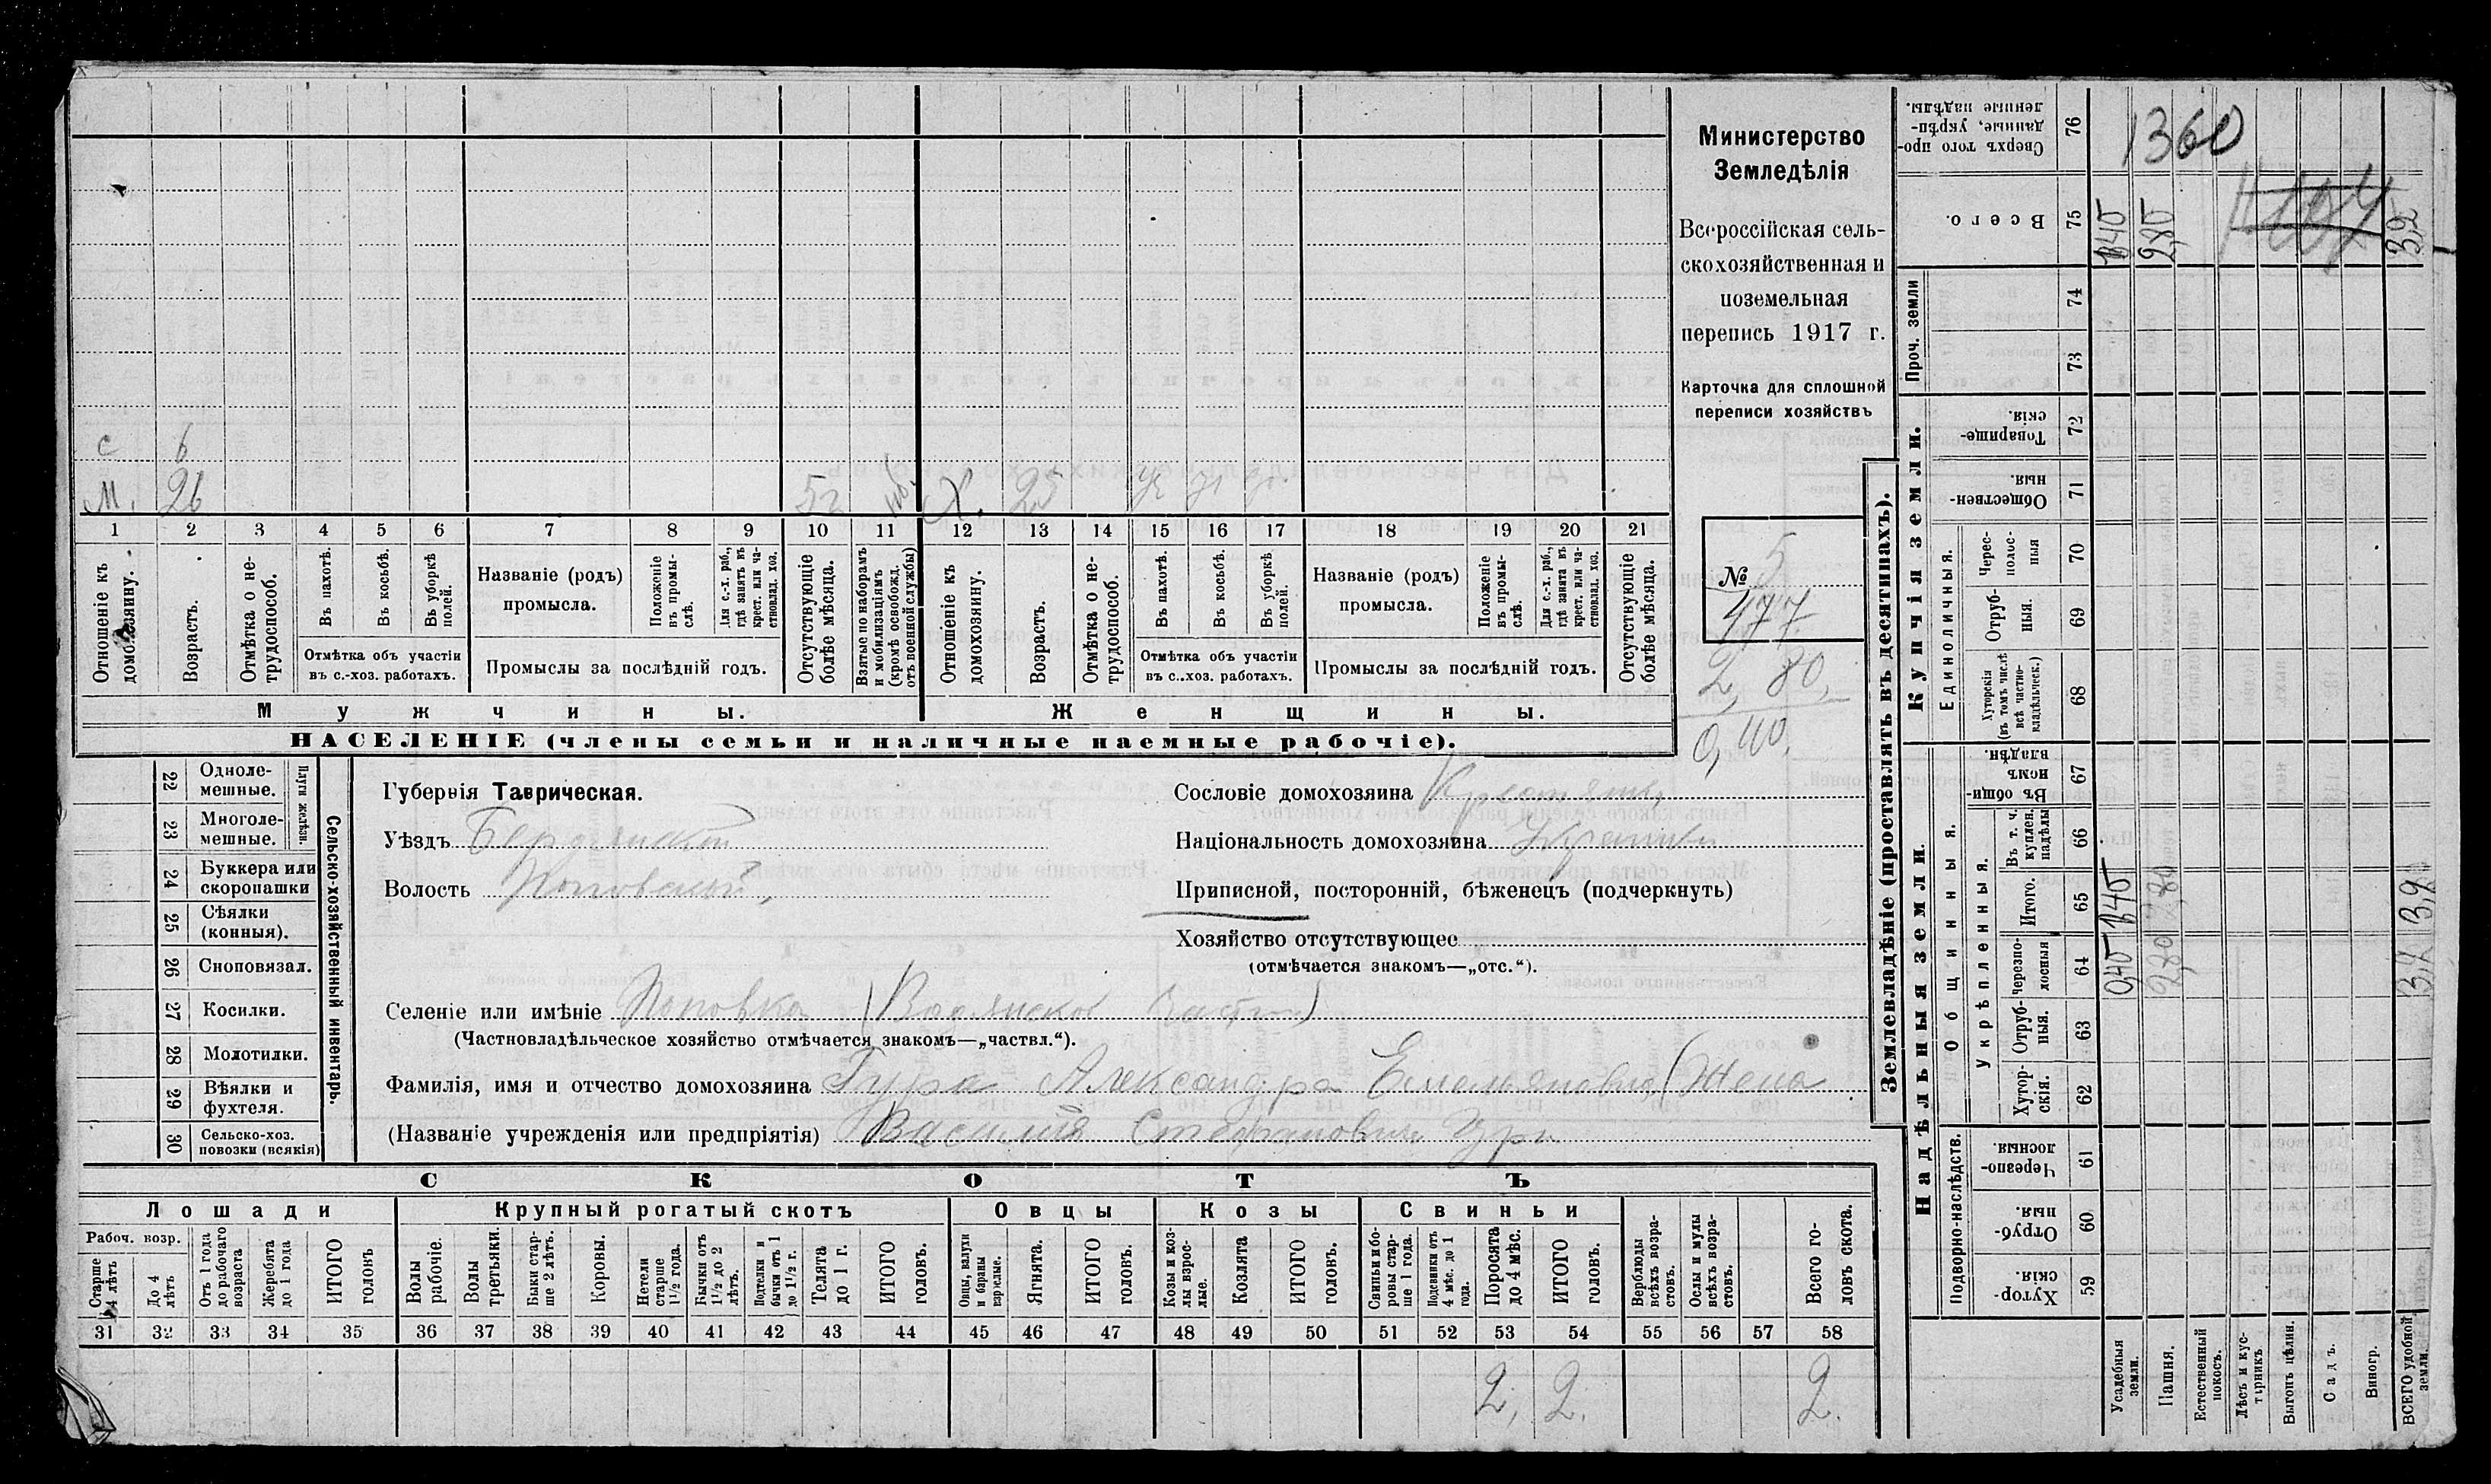 Министерство
Земледѣлія
Всероссійская сель-
скохозяйственная и
поземельная
перепись 1917 г.
Карточка для сплошной
переписи хозяйствъ
№ 5
177
2,80,
0,40.
с 6
м. 26 5 г. Х. 25
1 2 3 4 5 6 7 8 9 10 11 12 13 14 15 16 17 18 19 20 21
Отношеніе къ домохозяину.
Возрастъ.
Отмѣтка о не-трудоспособ.
Въ пахотѣ.
Въ косьбѣ.
Въ уборкѣ полей.
Отмѣтка объ участіи
въ с.-хоз. работахъ.
Названіе (родъ)
промысла.
Положеніе въ промы-слѣ.
Для с.-х. раб., гдѣ занятъ въ крест. или ча-ствовлад. хоз.
Промыслы за послѣдній годъ.
Отсутствующіе болѣе мѣсяца.
Взятые по наборамъ и мобилизаціямъ (кромѣ освобожд. отъ военной службы)
Отношеніе къ домохозяину.
Возрастъ.
Отмѣтка о не-трудоспособ.
Въ пахотѣ.
Въ косьбѣ.
Въ уборкѣ полей.
Отмѣтка объ участіи
въ с..хоз. работахъ.
Названіе (родъ)
промысла.
Положеніе въ промы-слѣ.
Для с.-х. раб., гдѣ занята въ крест. или ча-ствовлад. хоз.
Промыслы за послѣдній годъ.
Отсутствующіе болѣе мѣсяца.
Мужчины.
Женщины.
НАСЕЛЕНІЕ (члены семьи и наличные наемные рабочіе).
Сельско-хозяйственный инвентарь.
Плуги желѣзн.
22 Одноле-мешные.
23 Многоле-мешные.
24 Буккера или скоропашки
25 Сѣялки (конныя).
26 Сноповязал.
27 Косилки.
28 Молотилки.
29 Вѣялки и фухтеля.
30 Сельско-хоз. повозки (всякія)
Губернія Таврическая.
Уѣздъ Бердянскій
Волость Поповской,
Сословіе домохозяина Крестьянка,
Національность домохозяина Украинка
Приписной, посторонній, бѣженецъ (подчеркнуть)
Хозяйство отсутствующее
(отмѣчается знакомъ—„отс.“).
Селеніе или имѣніе Поповка (Водянской части)
(Частновладѣльческое хозяйство отмѣчается знакомъ—„частвл.“).
Фамилія, имя и отчество домохозяина Гура Александра Емельяновна, (Жена
(Названіе учрежденія или предпріятія) Василія Стефановича Гуры
СКОТЪ
Лошади
Крупный рогатый скотъ
Овцы
Козы
Свиньи
Рабоч. возр.
Старше 4 лѣтъ
До 4 лѣтъ
Отъ 1 года до рабочаго возраста
Жеребята до 1 года
ИТОГО головъ
Волы рабочіе.
Волы третьяки.
Быки стар-ше 2 лѣтъ.
Коровы.
Нетели старше 1½ года.
Бычки отъ 1½ до 2 лѣтъ.
Подтелки и бычки отъ 1 до 1½ г.
Телята до 1 г.
ИТОГО головъ.
Овцы, валухи и бараны взрослые.
Ягнята.
ИТОГО головъ.
Козы и коз-лы взрос-лые.
Козлята
ИТОГО головъ.
Свиньи и бо-ровы стар-ше 1 года.
Подсвинки отъ 4 мѣс. до 1 года.
Поросята до 4 мѣс.
ИТОГО головъ.
Верблюды всѣхъ возра-стовъ.
Ослы и мулы всѣхъ возра-стовъ.
Всего го-ловъ скота.
31 32 33 34 35 36 37 38 39 40 41 42 43 44 45 46 47 48 49 50 51 52 53 54 55 56 57 58
2, 2. 2.
Землевладѣніе (проставлять въ десятинахъ).
Надѣльныя земли.
Купчія земли.
Проч. земли
Подворно-наслѣдств.
Общинныя.
Укрѣпленныя.
Единоличныя.
Хутор-скія. 59
Отруб-ныя. 60
Черезпо-лосныя 61
Хутор-скія. 62
Отруб-ныя. 63
Черезпо-лосныя 64
Итого. 65
Въ т. ч. куплен. надѣлы 66
Въ общи-номъ владѣн. 67
Хуторскія (въ томъ числѣ всѣ частно-владѣльческ.) 68
Отруб-ныя. 69
Черес-полос-ныя 70
Обществен-ныя. 71
Товарище-скія. 72
73
74
Всего. 75
Сверхъ того про-данные, укрѣп-ленные надѣлы. 76
Усадебныя земли.
Пашня.
Естественный покосъ.
Лѣсъ и кус-тарникъ
Выгонъ цѣлин.
Садъ.
Виногр.
ВСЕГО удобной земли.
1360
2,80 2,80
3,2 3,2
3,2